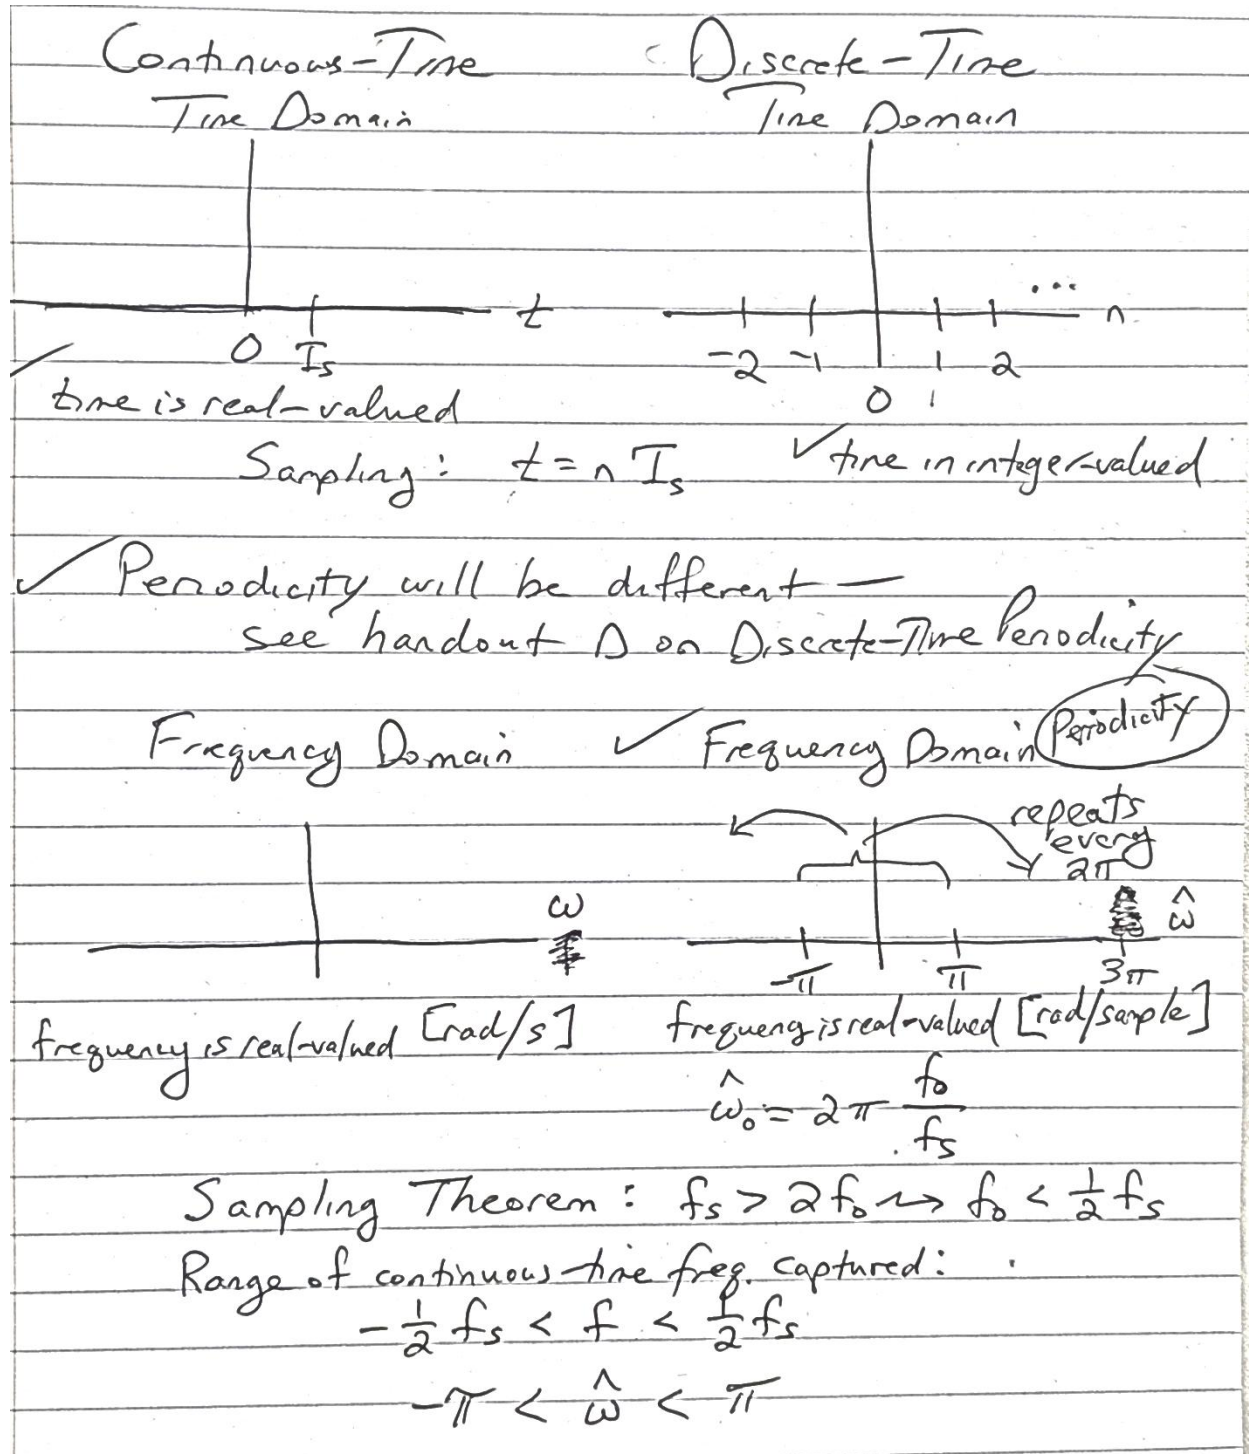 Continuous-Time
Time Domain
t
0 Ts
time is real-valued
Discrete-Time
Time Domain
... n
-2 -1 1 2
0 1
Sampling: t = n Ts
✓ time in integer-valued
✓ Periodicity will be different —
see handout D on Discrete-Time Periodicity
Frequency Domain
ω
frequency is real-valued [rad/s]
✓ Frequency Domain Periodicity
repeats
every
2π
ω̂
-π π 3π
frequency is real-valued [rad/sample]
ω̂₀ = 2π f₀/fs
Sampling Theorem: fs > 2f₀ ⇝ f₀ < ½ fs
Range of continuous-time freq. captured:
-½ fs < f < ½ fs
-π < ω̂ < π